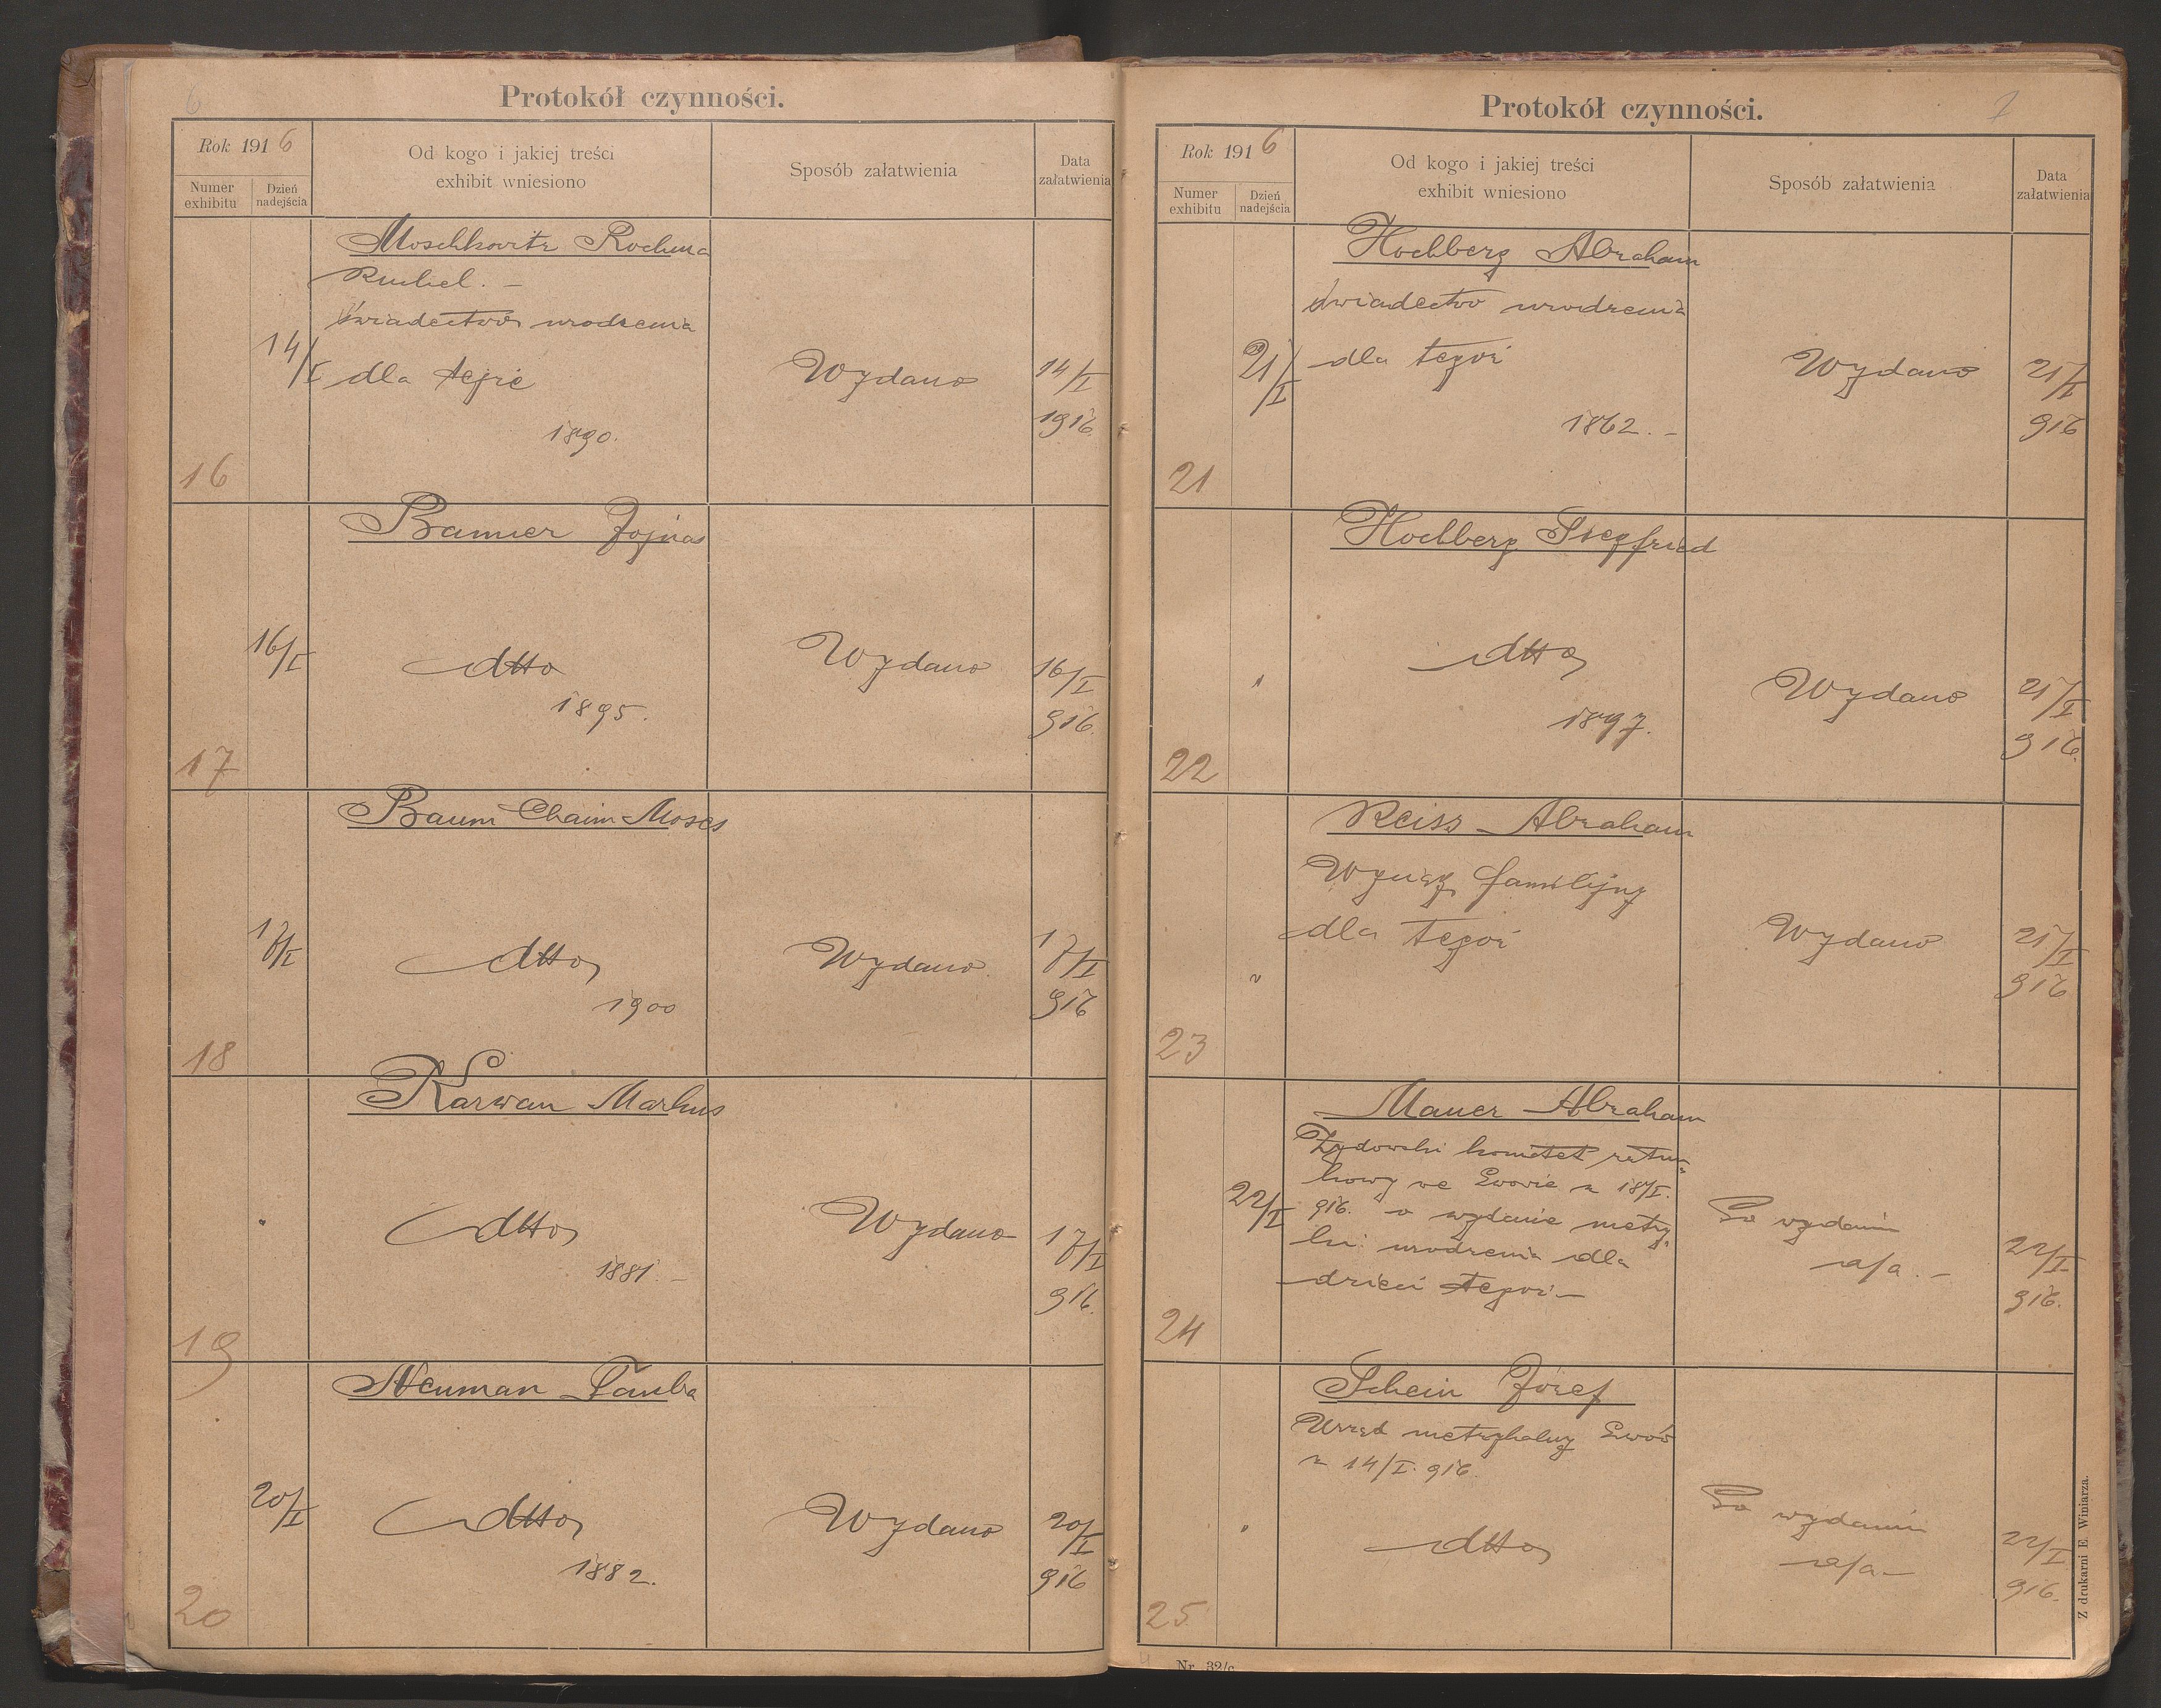 6
Protokół czynności.
Rok 1916
Numer exhibitu
Dzień nadejścia
Od kogo i jakiej treści
exhibit wniesiono
Sposób załatwienia
Data
załatwienia
Moschkovitz Rochma
Ruchel. –
świadectwo urodzenia
14/I dla tejże Wydano 14/I
1890. 1916
16
Banner Jojnas
16/I dtto Wydano 16/I
1895. 916.
17
Baum Chaim Moses
17/I dtto Wydano. 17/I
1900 916
18
Karwan Markus
" dtto Wydano 17/I
1881. – 916.
19
Neuman Tauba
20/I dtto Wydano 20/I
1882. 916
20
7
Protokół czynności.
Rok 1916
Numer exhibitu
Dzień nadejścia
Od kogo i jakiej treści
exhibit wniesiono
Sposób załatwienia
Data
załatwienia
Hochberg Abraham
świadectwo urodzenia
21/I dla tegoż Wydano 21/I
1862. – 916
21
Hochberg Siegfried
" dtto Wydano 21/I
1897. 916.
22
Reiss Abraham
Wyciąg familijny
dla tegoż Wydano 21/I
" 916
23
Mauer Abraham
Żydowski komitet ratun-
kowy we Lwowie z 18/I.
22/I 916. o wydanie metry-
ki urodzenia dla
dzieci tegoż –
Po wydaniu
a/a. – 22/I
916.
24
Schein Józef
Urząd metrykalny Lwów
z 14/I. 916.
" dtto
Po wydaniu
a/a – 22/I
916.
25
Z drukarni E. Winiarza.
Nr. 32/c